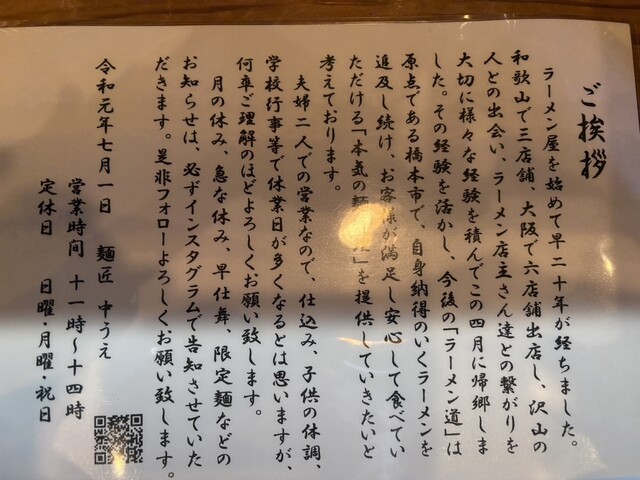 ご挨拶
ラーメン屋を始めて早二十年が経ちました。
和歌山で三店舗、大阪で六店舗出店し、沢山の
人との出会い、ラーメン店主さん達との繋がりを
大切に様々な経験を積んでこの四月に帰郷しま
した。その経験を活かし、今後の「ラーメン道」は
原点である橋本市で、自身納得のいくラーメンを
追及し続け、お客様が満足し安心して食べてい
ただける「本気の麺」を提供していきたいと
考えております。
夫婦二人での営業なので、仕込み、子供の体調、
学校行事等で休業日が多くなるとは思いますが、
何卒ご理解のほどよろしくお願い致します。
月の休み、急な休み、早仕舞、限定麺などの
お知らせは、必ずインスタグラムで告知させていた
だきます。是非フォローよろしくお願い致します。
令和元年七月一日 麺匠 中うえ
営業時間 十一時〜十四時
定休日 日曜・月曜・祝日